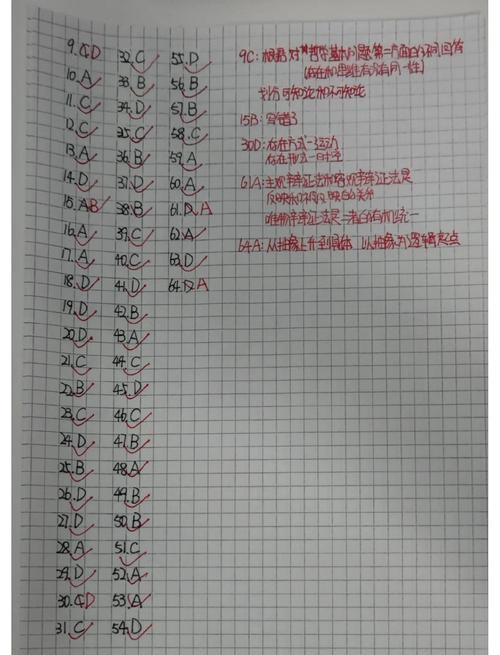 9. D
10. A
11. C
12. C
13. A
14. D
15. AB
16. A
17. A
18. D
19. D
20. D
21. C
22. B
23. C
24. D
25. B
26. D
27. D
28. A
29. D
30. D
31. C
32. C
33. B
34. D
35. C
36. B
37. D
38. B
39. C
40. C
41. D
42. B
43. A
44. C
45. D
46. C
47. B
48. A
49. B
50. B
51. C
52. A
53. A
54. D
55. D
56. B
57. B
58. C
59. A
60. A
61. A
62. A
63. D
64. A
9C：根据对哲学基本问题第二方面的不同回答
(存在和思维有没有同一性)
划分可知论和不可知论
15B：写错了
30D：存在方式—运动
存在形式—时空
61A：主观辩证法和客观辩证法是
反映和被反映的关系
唯物辩证法是二者的有机统一
64A：从抽象上升到具体 以抽象为逻辑起点